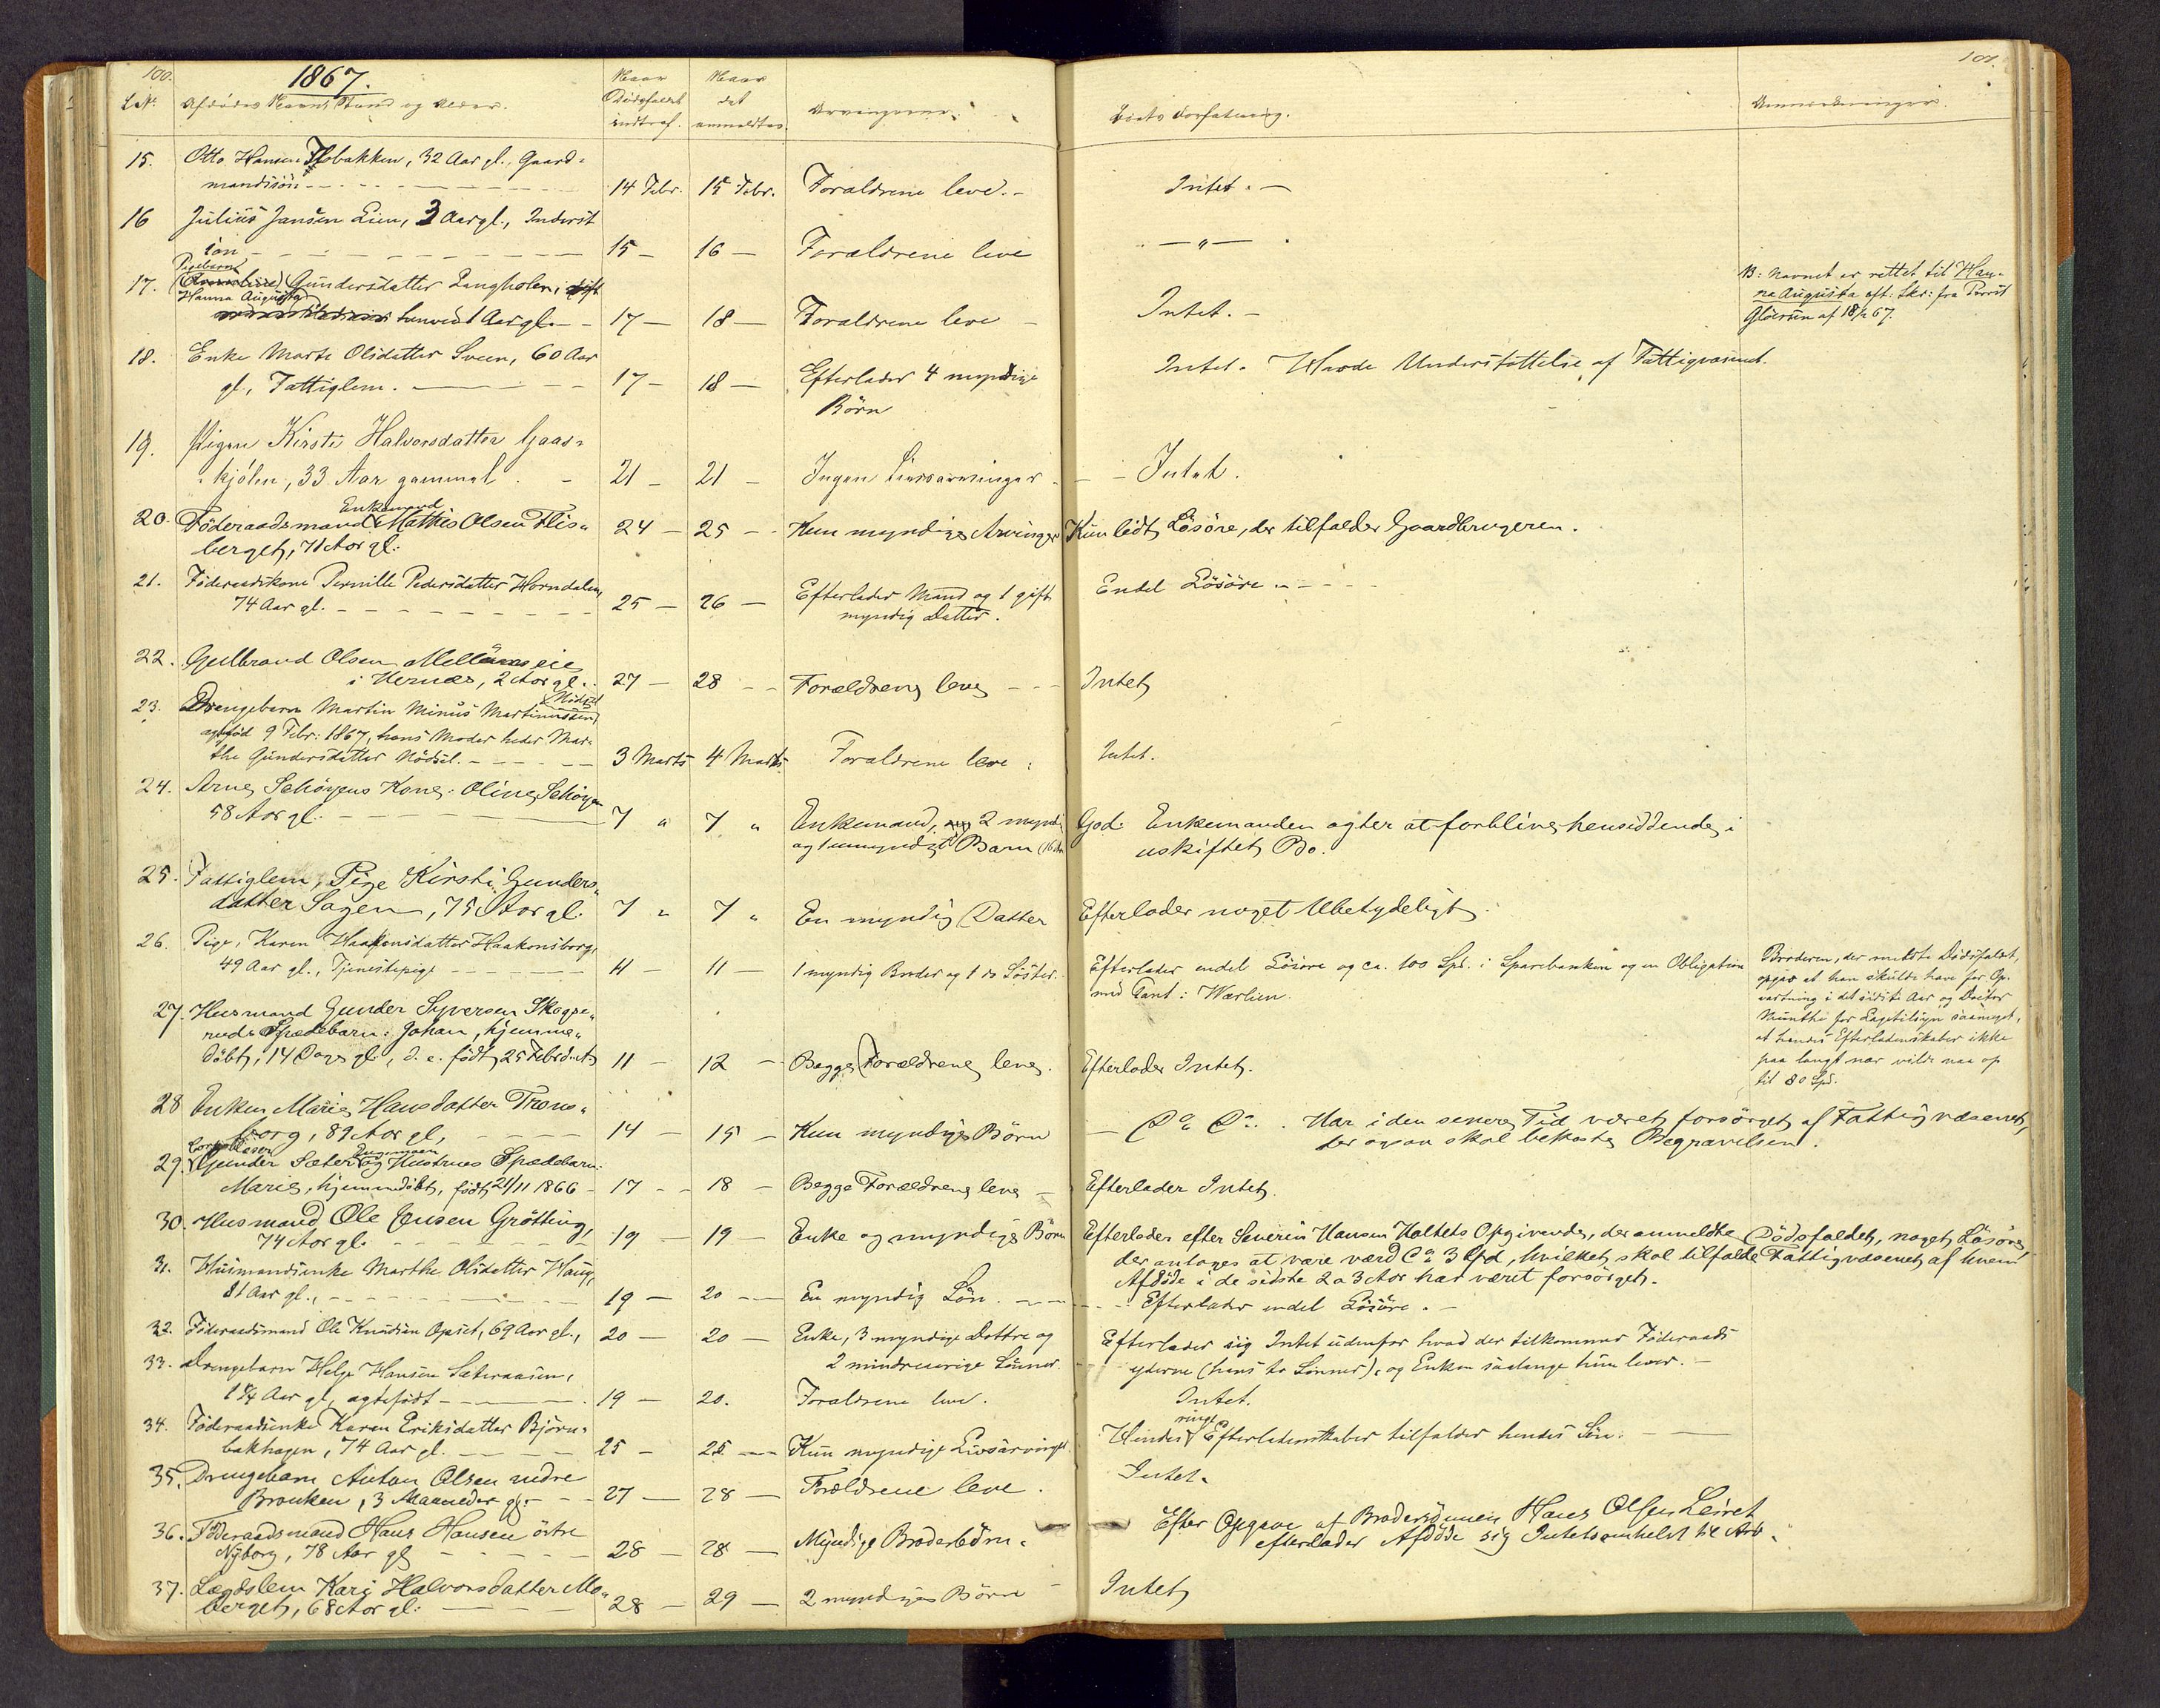 100.
1867.
L№
Afdødes Navn, Stand og Alder.
Naar
Dødsfaldet
indtraf.
Naar
det
anmeldtes.
Arvingerne.
Boets Forfatning.
Anmærkninger.
101.
15. Otto Hansen Flobakken, 32 Aar gl., Gaard-
mandssön 14 Febr. 15 Febr. Forældrene leve. Intet.
16 Julius Jansen Lien, 3 Aar gl., Inderst
sön 15 — 16 — Forældrene leve — " —
Pigebarn
17. Gundersdatter Langholen,
Hanna Augusta
henved 1 Aar gl. 17 — 18 — Forældrene leve Intet.
NB: Navnet er rettet til Han-
na Augusta eft: Skr: fra Provst
Glöersen af 18/2 67.
18. Enke Marte Olsdatter Sveen, 60 Aar
gl., Fattiglem. 17 — 18 — Efterlader 4 myndige
Börn
Intet. Havde Understøttelse af Fattigvæsenet.
19. Pigen Kirsti Halvorsdatter Gaas-
kjölen, 33 Aar gammel. 21 — 21 — Ingen Livsarvinger Intet.
Enkemand
20. Föderaadsmand Mathis Olsen Flis-
berget, 71 Aar gl. 24 — 25 — Kun myndige Arvinger Kun lidt Lösöre, der tilfalder Gaardbrugeren.
21. Föderaadskone Pernille Pedersdatter Horndalen,
74 Aar gl. 25 — 26 — Efterlader Mand og 1 gift
myndig Datter.
Endel Lösöre.
22. Gulbrand Olsen Mellemeie
i Hernæs, 2 Aar gl. 27 — 28 — Forældrene leve Intet
23. Drengebarn Martin Minius Martinussen Nödset
født 9 Febr: 1867, hans Moder heder Mar-
the Gundersdatter Nödset. 3 Marts 4 Marts Forældrene leve Intet.
24. Arne Schöyens Kone: Oline Schöyen
58 Aar gl. 7 " 7 " Enkemand, 2 myndi
og 1 umyndigt Barn (16 Aar
God. Enkemanden agter at forblive hensiddende i
uskiftet Bo.
25. Fattiglem, Pige Kirsti Gunders-
datter Sagen, 75 Aar gl. 7 " 7 " En myndig Datter Efterlader noget Ubetydeligt.
26. Pige, Karen Haakonsdatter Haakonsborg,
49 Aar gl., Tjenestepige 11 — 11 — 1 myndig Broder og 1 do Söster.
Efterlader endel Lösöre og ca. 100 Spd. i Sparebanken og en Obligation
med Pant: Wærlien.
Broderen, der meldte Dödsfaldet,
opgav at han skulde have for Op-
vartning i det sidste Aar og Doctor
Munthe for Lægetilsyn saameget,
at hendes Efterladenskaber ikke
paa langt nær vilde naa op
til 80 Spd.
27. Husmand Gunder Syversen Skogse-
ruds Spædebarn: Johan, hjemme-
döbt, 14 Dage gl., d. e. född 25 Febr d. A. 11 — 12 — Begge Forældrene leve. Efterlader Intet.
28 Enken Marie Hansdatter Trons-
borg, 89 Aar gl, 14 — 15 — Kun myndige Börn
— Do Do. Har i den senere Tid været forsörget af Fattigvæsenet,
der ogsaa skal bekoste Begravelsen.
29. Gunder Sæter og Hustrues Spædebarn:
Marie, hjemmedöbt, född 21/11 1866 17 — 18 — Begge Forældrene leve Efterlader Intet.
30. Husmand Ole Jensen Grötting,
74 Aar gl. 19 — 19 — Enke og myndige Börn
Efterlader efter Severin Hansen Holtets Opgivende, der anmeldte Dödsfaldet, noget Lösöre,
der antages at være værd Ca 3 Spd, hvilket skal tilfalde Fattigvæsenet, af hvem
Afdöde i de sidste 2 a 3 Aar har været forsörget.
31. Husmandsenke Marthe Olsdatter Haug,
81 Aar gl., 19 — 20 — En myndig Sön. Efterlader endel Lösöre.
32. Föderaadsmand Ole Knudsen Opset, 69 Aar gl., 20 — 20 — Enke, 3 myndige Döttre og
2 mindreaarige Sönner.
Efterlader sig Intet udenfor hvad der tilkommer Föderaads
yderne (hans to Sönner), og Enken saalange hun lever.
33. Drengebarn Helge Hansen Sæteraasen,
1 3/4 Aar gl, ægtefödt 19 — 20. Forældrene leve. Intet.
34. Föderaadsenke Karen Eriksdatter Björn-
bakhagen, 74 Aar gl. 25 — 25 — Kun myndige Livsarvinger.
Hendes ringe Efterladenskaber tilfalder hendes Sön.
35. Drengebarn Anton Olsen nedre
Brouken, 3 Maaneder gl. 27 — 28 — Forældrene leve. Intet.
36. Föderaadsmand Hans Hansen östre
Nyborg, 78 Aar gl 28 — 28 — Myndige Broderbörn.
Efter Opgave af Brodersönnen Hans Olsen Leiret
efterlader Afdöde sig Intetsomhelst til Arv.
37. Lægdslem Kari Halvorsdatter Mo-
berget, 68 Aar gl. 28 — 29 — 2 myndige Börn Intet